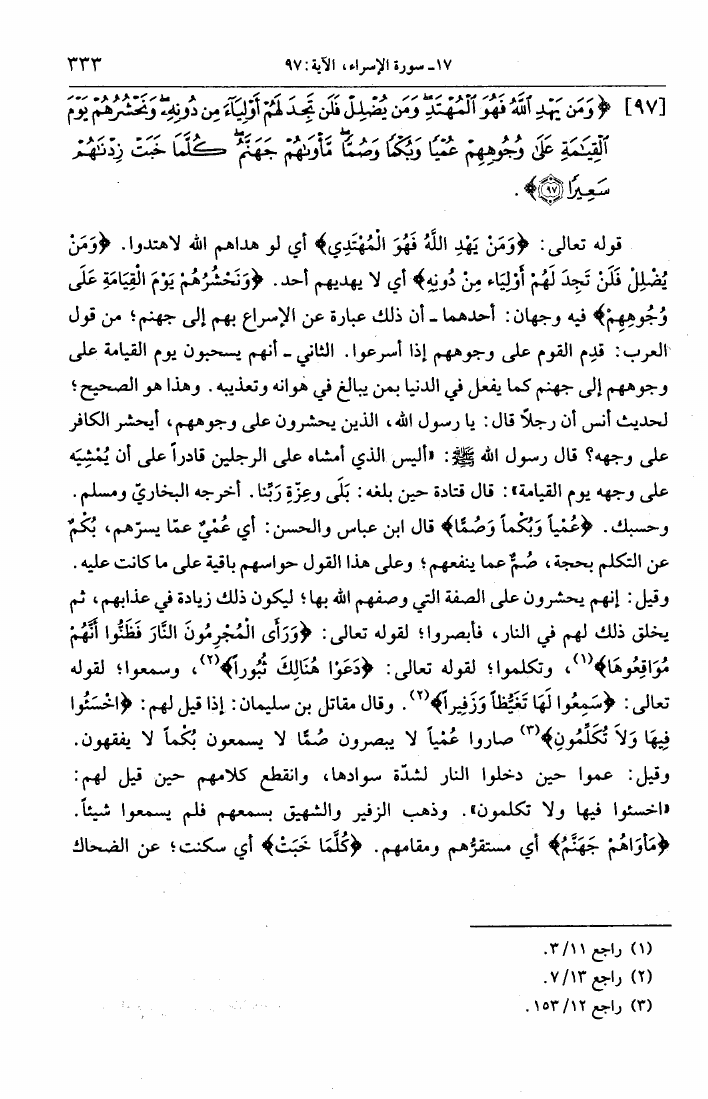 ١٧ـ سورة الإسراء، الآية: ٩٧ ٣٣٣
[٩٧] ﴿وَمَن يَهْدِ ٱللَّهُ فَهُوَ ٱلْمُهْتَدِ وَمَن يُضْلِلْ فَلَن تَجِدَ لَهُمْ أَوْلِيَآءَ مِن دُونِهِۦ وَنَحْشُرُهُمْ يَوْمَ
ٱلْقِيَٰمَةِ عَلَىٰ وُجُوهِهِمْ عُمْيًا وَبُكْمًا وَصُمًّا مَّأْوَىٰهُمْ جَهَنَّمُ كُلَّمَا خَبَتْ زِدْنَٰهُمْ
سَعِيرًا ٩٧﴾.
قوله تعالى: ﴿وَمَنْ يَهْدِ اللَّهُ فَهُوَ الْمُهْتَدِي﴾ أي لو هداهم الله لاهتدوا. ﴿وَمَنْ
يُضْلِلْ فَلَنْ تَجِدَ لَهُمْ أَوْلِيَاء مِنْ دُونِهِ﴾ أي لا يهديهم أحد. ﴿وَنَحْشُرُهُمْ يَوْمَ الْقِيَامَةِ عَلَى
وُجُوهِهِمْ﴾ فيه وجهان: أحدهما ـ أن ذلك عبارة عن الإسراع بهم إلى جهنم؛ من قول
العرب: قدِم القوم على وجوههم إذا أسرعوا. الثاني ـ أنهم يسحبون يوم القيامة على
وجوههم إلى جهنم كما يفعل في الدنيا بمن يبالغ في هوانه وتعذيبه. وهذا هو الصحيح؛
لحديث أنس أن رجلاً قال: يا رسول الله، الذين يحشرون على وجوههم، أيحشر الكافر
على وجهه؟ قال رسول الله ﷺ: «أليس الذي أمشاه على الرجلين قادراً على أن يُمْشِيَه
على وجهه يوم القيامة»: قال قتادة حين بلغه: بَلَى وعِزّةِ رَبِّنا. أخرجه البخاريّ ومسلم.
وحسبك. ﴿عُمْياً وَبُكْماً وَصُمًّا﴾ قال ابن عباس والحسن: أي عُمْيٌ عمّا يسرّهم، بُكْمٌ
عن التكلم بحجة، صُمٌّ عما ينفعهم؛ وعلى هذا القول حواسهم باقية على ما كانت عليه.
وقيل: إنهم يحشرون على الصفة التي وصفهم الله بها؛ ليكون ذلك زيادة في عذابهم، ثم
يخلق ذلك لهم في النار، فأبصروا؛ لقوله تعالى: ﴿وَرَأَى الْمُجْرِمُونَ النَّارَ فَظَنُّوا أَنَّهُمْ
مُوَاقِعُوهَا﴾(١)، وتكلموا؛ لقوله تعالى: ﴿دَعَوْا هُنَالِكَ ثُبُوراً﴾(٢)، وسمعوا؛ لقوله
تعالى: ﴿سَمِعُوا لَهَا تَغَيُّظاً وَزَفِيراً﴾(٢). وقال مقاتل بن سليمان: إذا قيل لهم: ﴿اخْسَئُوا
فِيهَا وَلاَ تُكَلِّمُونِ﴾(٣) صاروا عُمْياً لا يبصرون صُمًّا لا يسمعون بُكْماً لا يفقهون.
وقيل: عموا حين دخلوا النار لشدّة سوادها، وانقطع كلامهم حين قيل لهم:
«اخسئوا فيها ولا تكلمون». وذهب الزفير والشهيق بسمعهم فلم يسمعوا شيئاً.
﴿مَأوَاهُمْ جَهَنَّمُ﴾ أي مستقرُّهم ومقامهم. ﴿كُلَّمَا خَبَتْ﴾ أي سكنت؛ عن الضحاك
(١) راجع ٣/١١.
(٢) راجع ٧/١٣.
(٣) راجع ١٥٣/١٢.